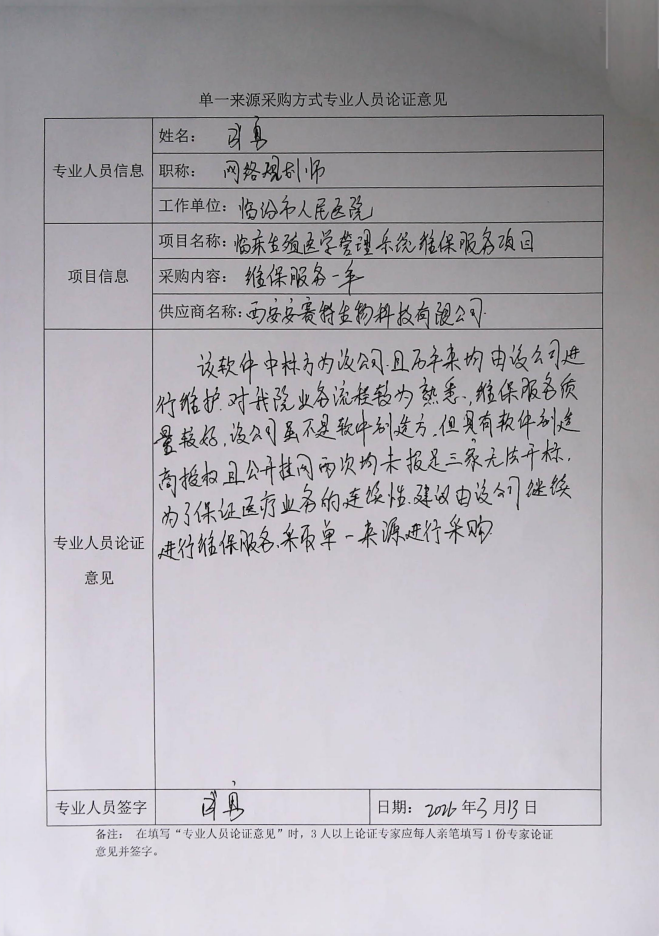 单一来源采购方式专业人员论证意见
专业人员信息
姓名：
职称： 网络规划师
工作单位：临汾市人民医院
项目信息
项目名称：临床生殖医学管理系统维保服务项目
采购内容： 维保服务一年
供应商名称：西安安赛特生物科技有限公司
专业人员论证
意见
该软件中标方为该公司.且历年来均由该公司进
行维护.对我院业务流程较为熟悉,维保服务质
量较好,该公司虽不是软件制造方,但具有软件制造
商授权且公开挂网两次均未报足三家无法开标,
为了保证医疗业务的连续性.建议由该公司继续
进行维保服务,采取单一来源进行采购.
专业人员签字
日期：2026年3月13日
备注： 在填写“专业人员论证意见”时，3人以上论证专家应每人亲笔填写1份专家论证
意见并签字。